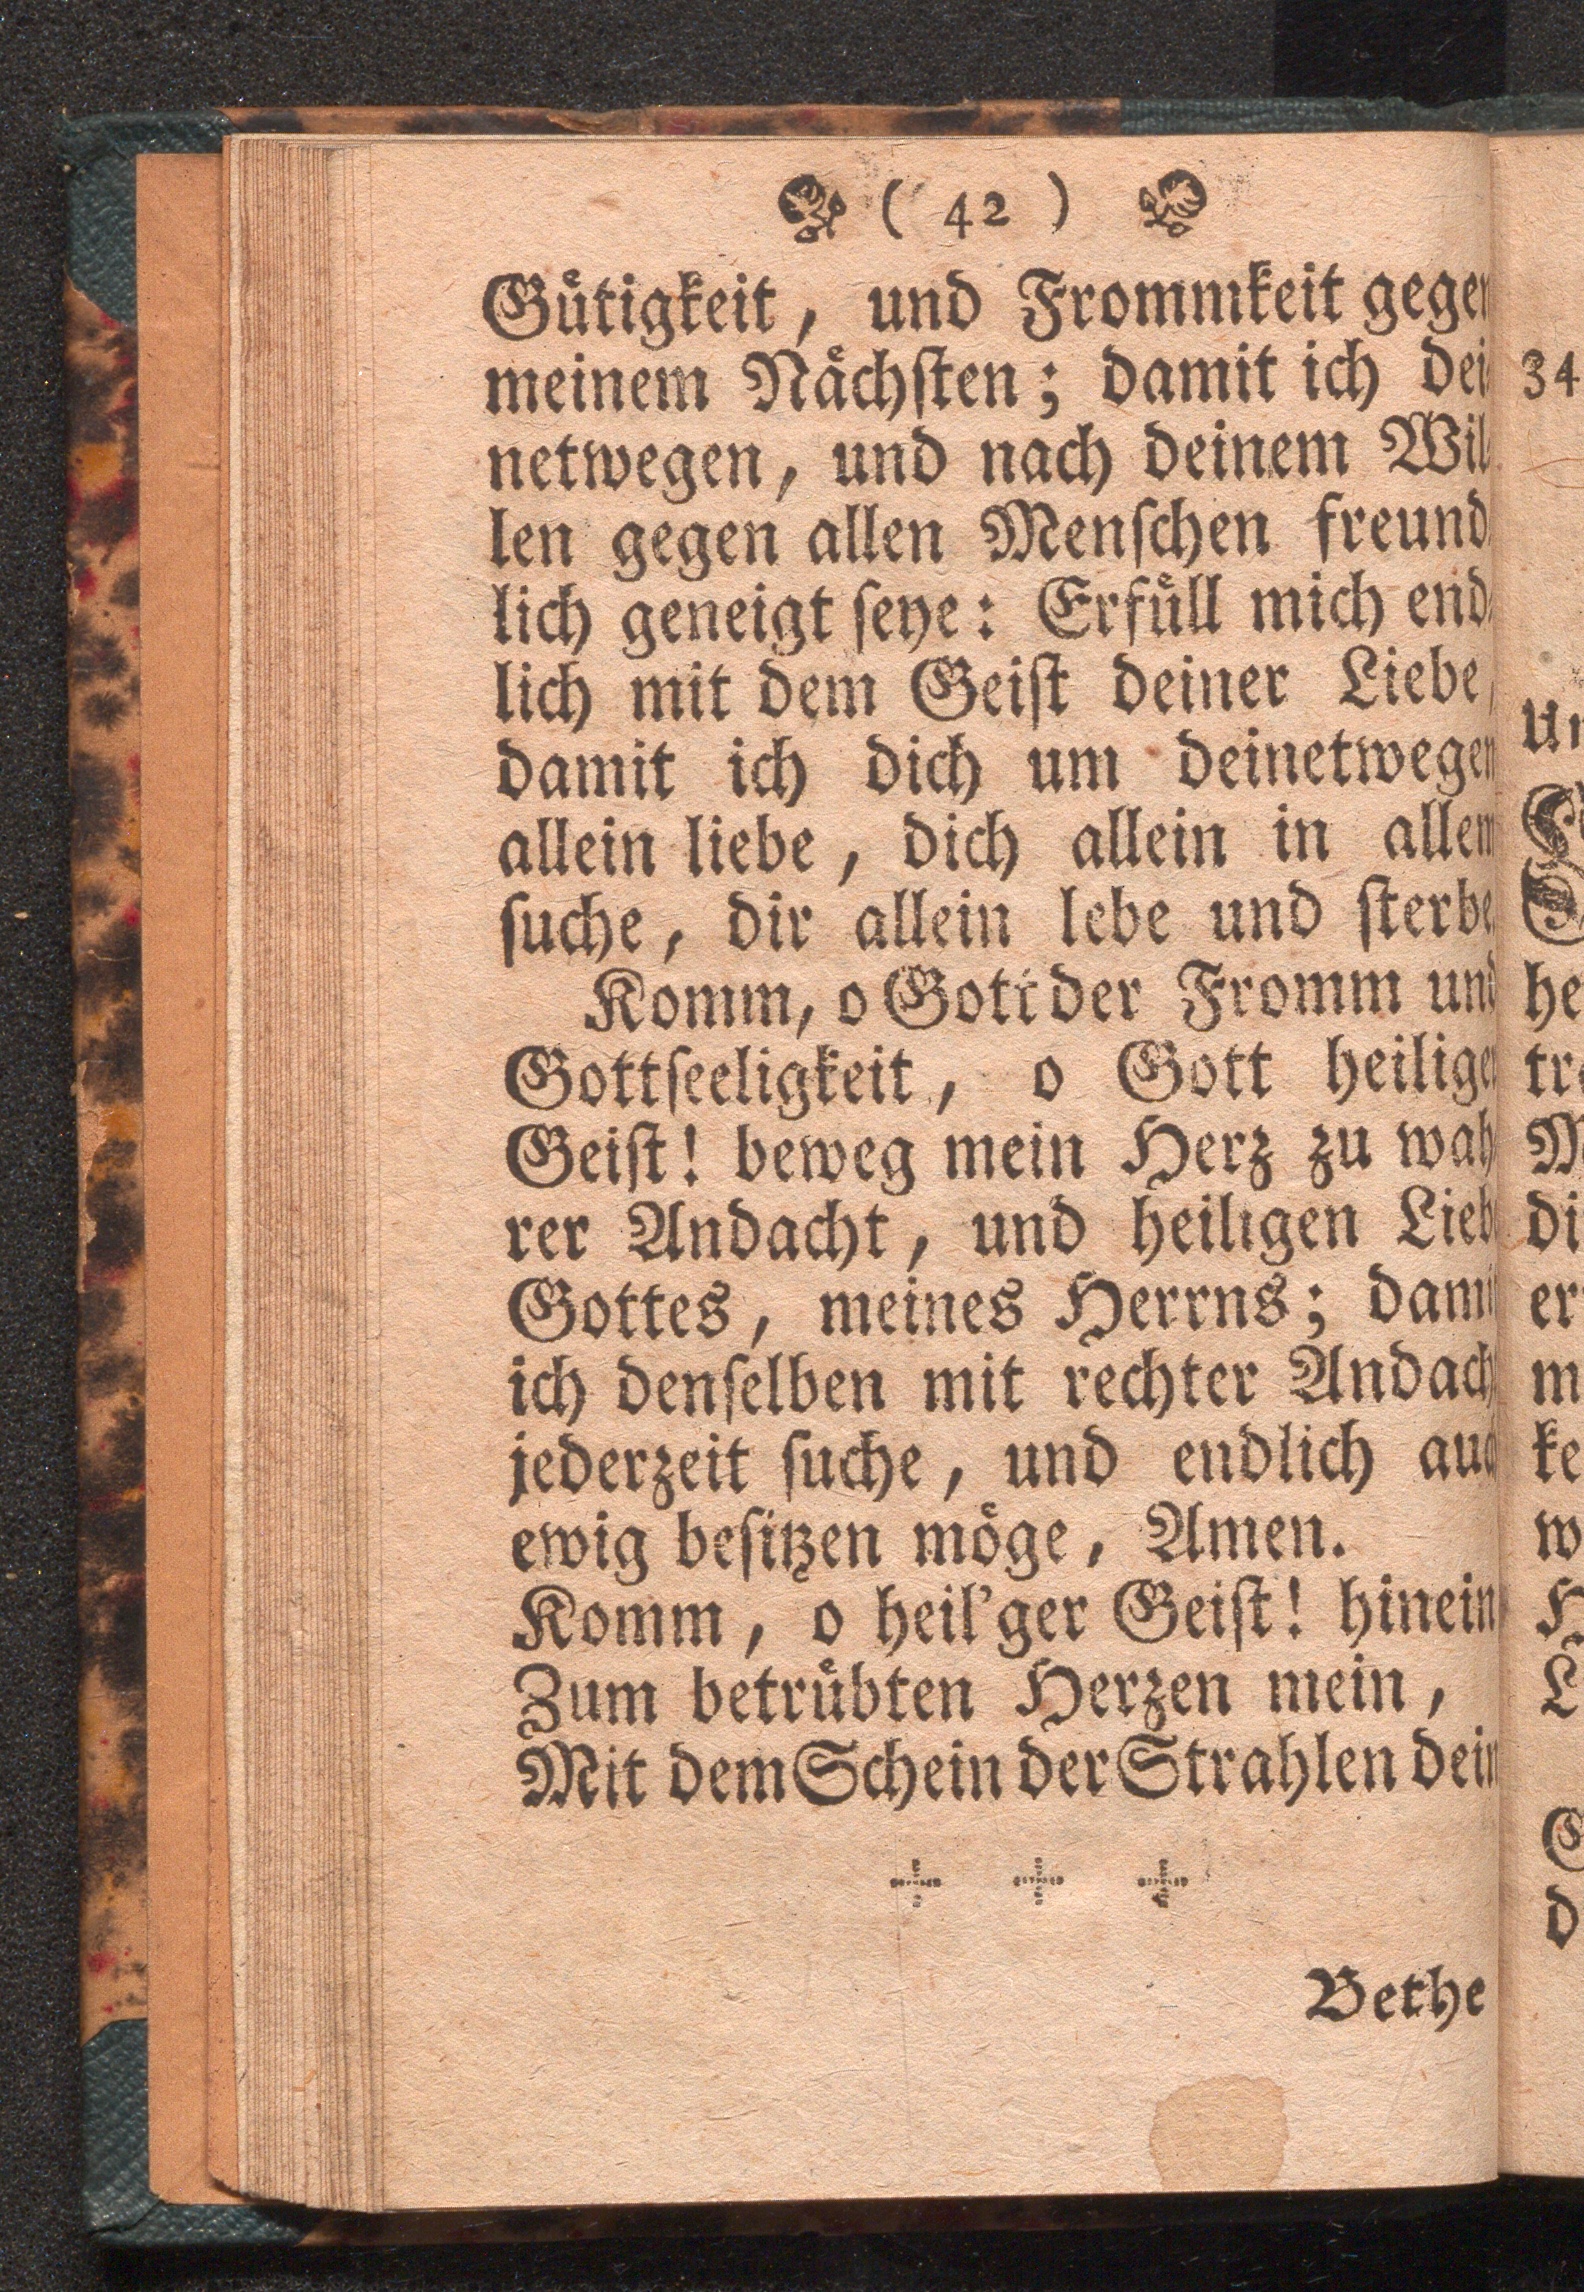 ( 42 )
Gütigkeit, und Frommkeit gegen
meinem Nächsten; damit ich dei-
netwegen, und nach deinem Wil-
len gegen allen Menschen freund-
lich geneigt seye: Erfüll mich end-
lich mit dem Geist deiner Liebe,
damit ich dich um deinetwegen
allein liebe, dich allein in allem
suche, dir allein lebe und sterbe
Komm, o Gott der Fromm und
Gottseeligkeit, o Gott heiliger
Geist! beweg mein Herz zu wah
rer Andacht, und heiligen Lieb
Gottes, meines Herrns; damit
ich denselben mit rechter Andach
jederzeit suche, und endlich auch
ewig besitzen möge, Amen.
Komm, o heil'ger Geist! hinein
Zum betrübten Herzen mein,
Mit dem Schein der Strahlen dein
Bethe
34
Un
he
tr
M
di
er
m
ke
w
H
L
G
d